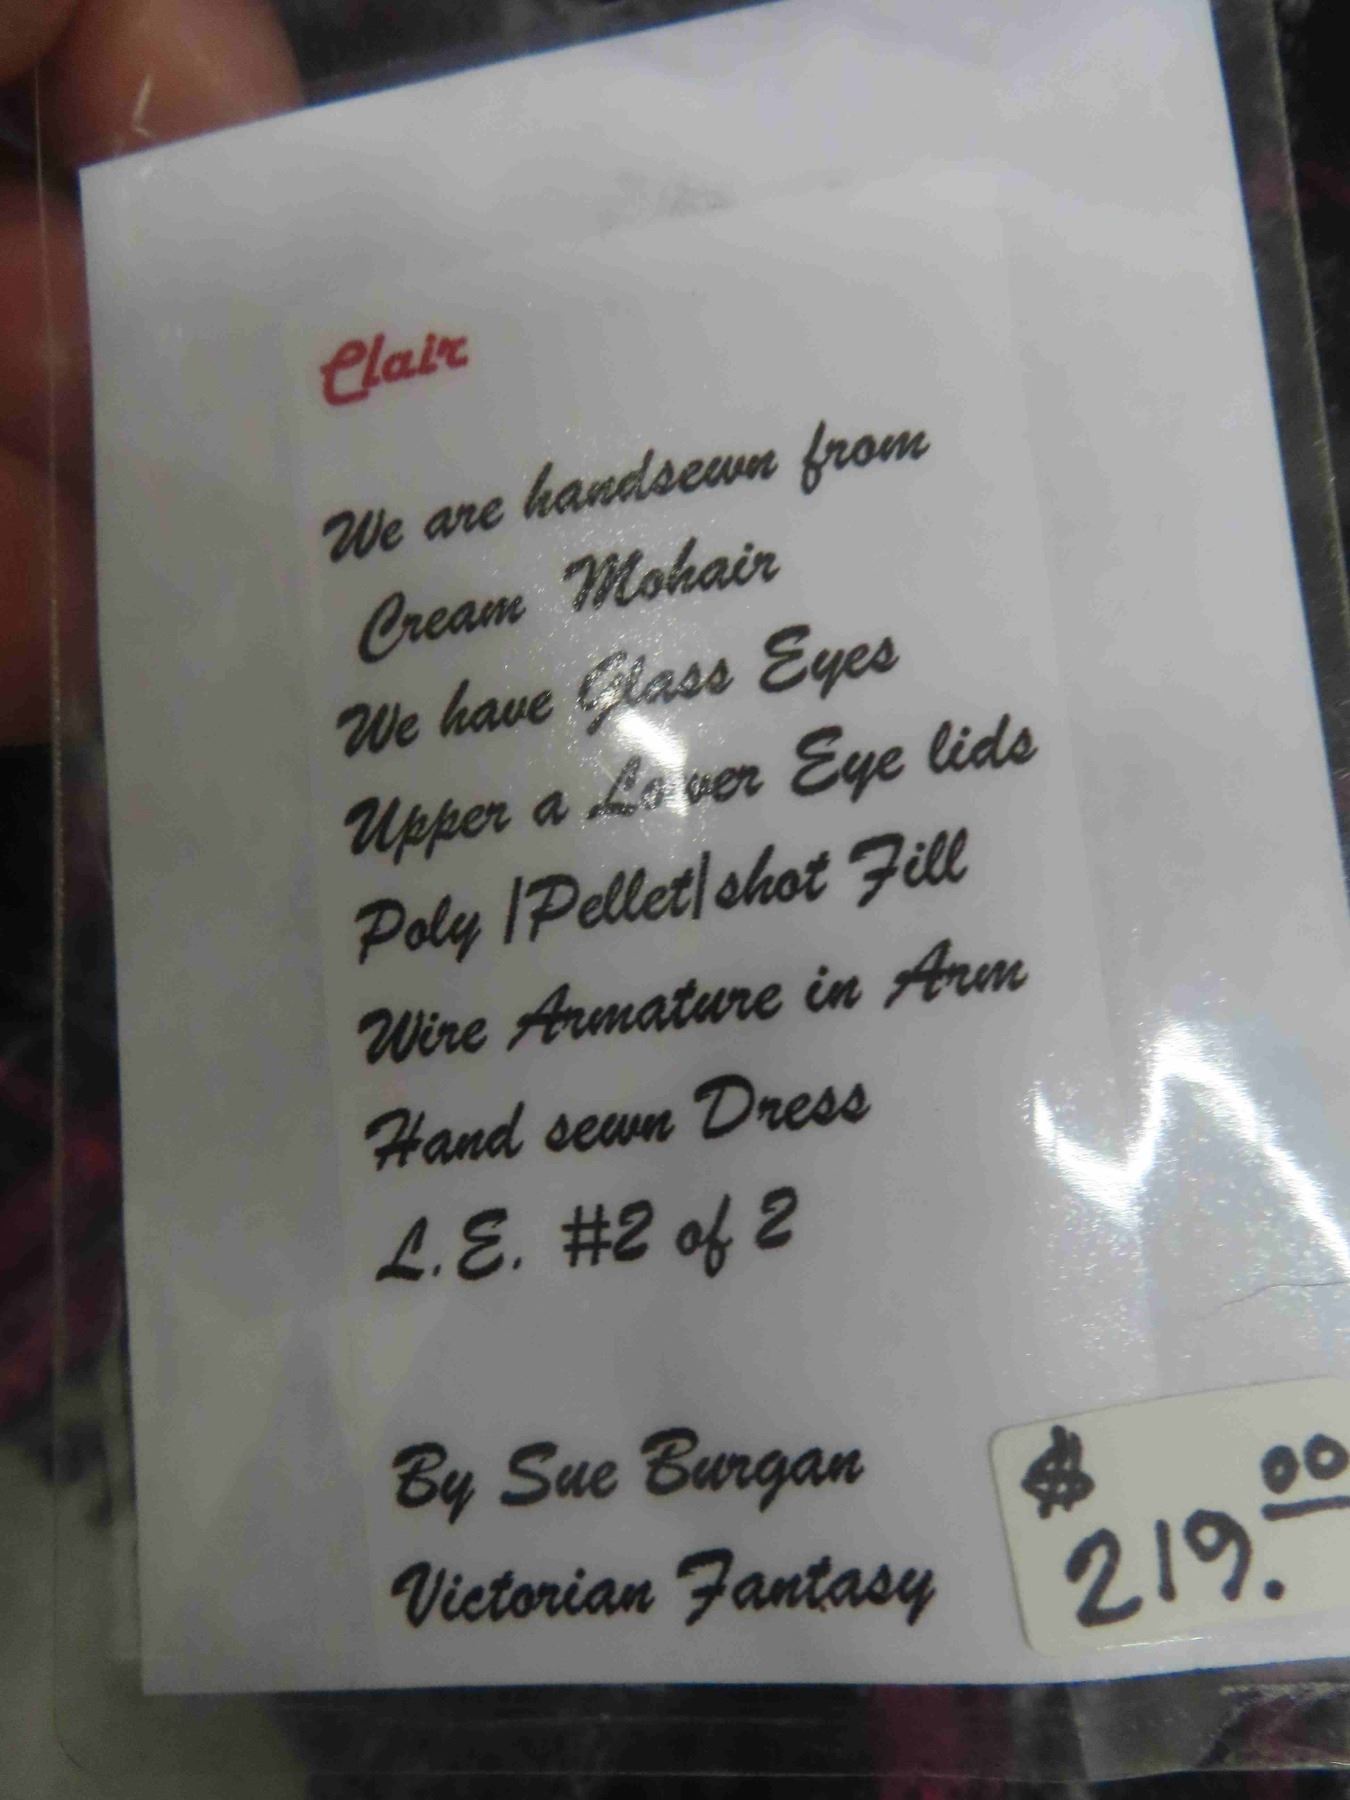 Clair
We are handsewn from
Cream Mohair
We have Glass Eyes
Upper a Lower Eye lids
Poly |Pellet|shot Fill
Wire Armature in Arm
Hand sewn Dress
L.E. #2 of 2
By Sue Burgan
Victorian Fantasy
$219.00